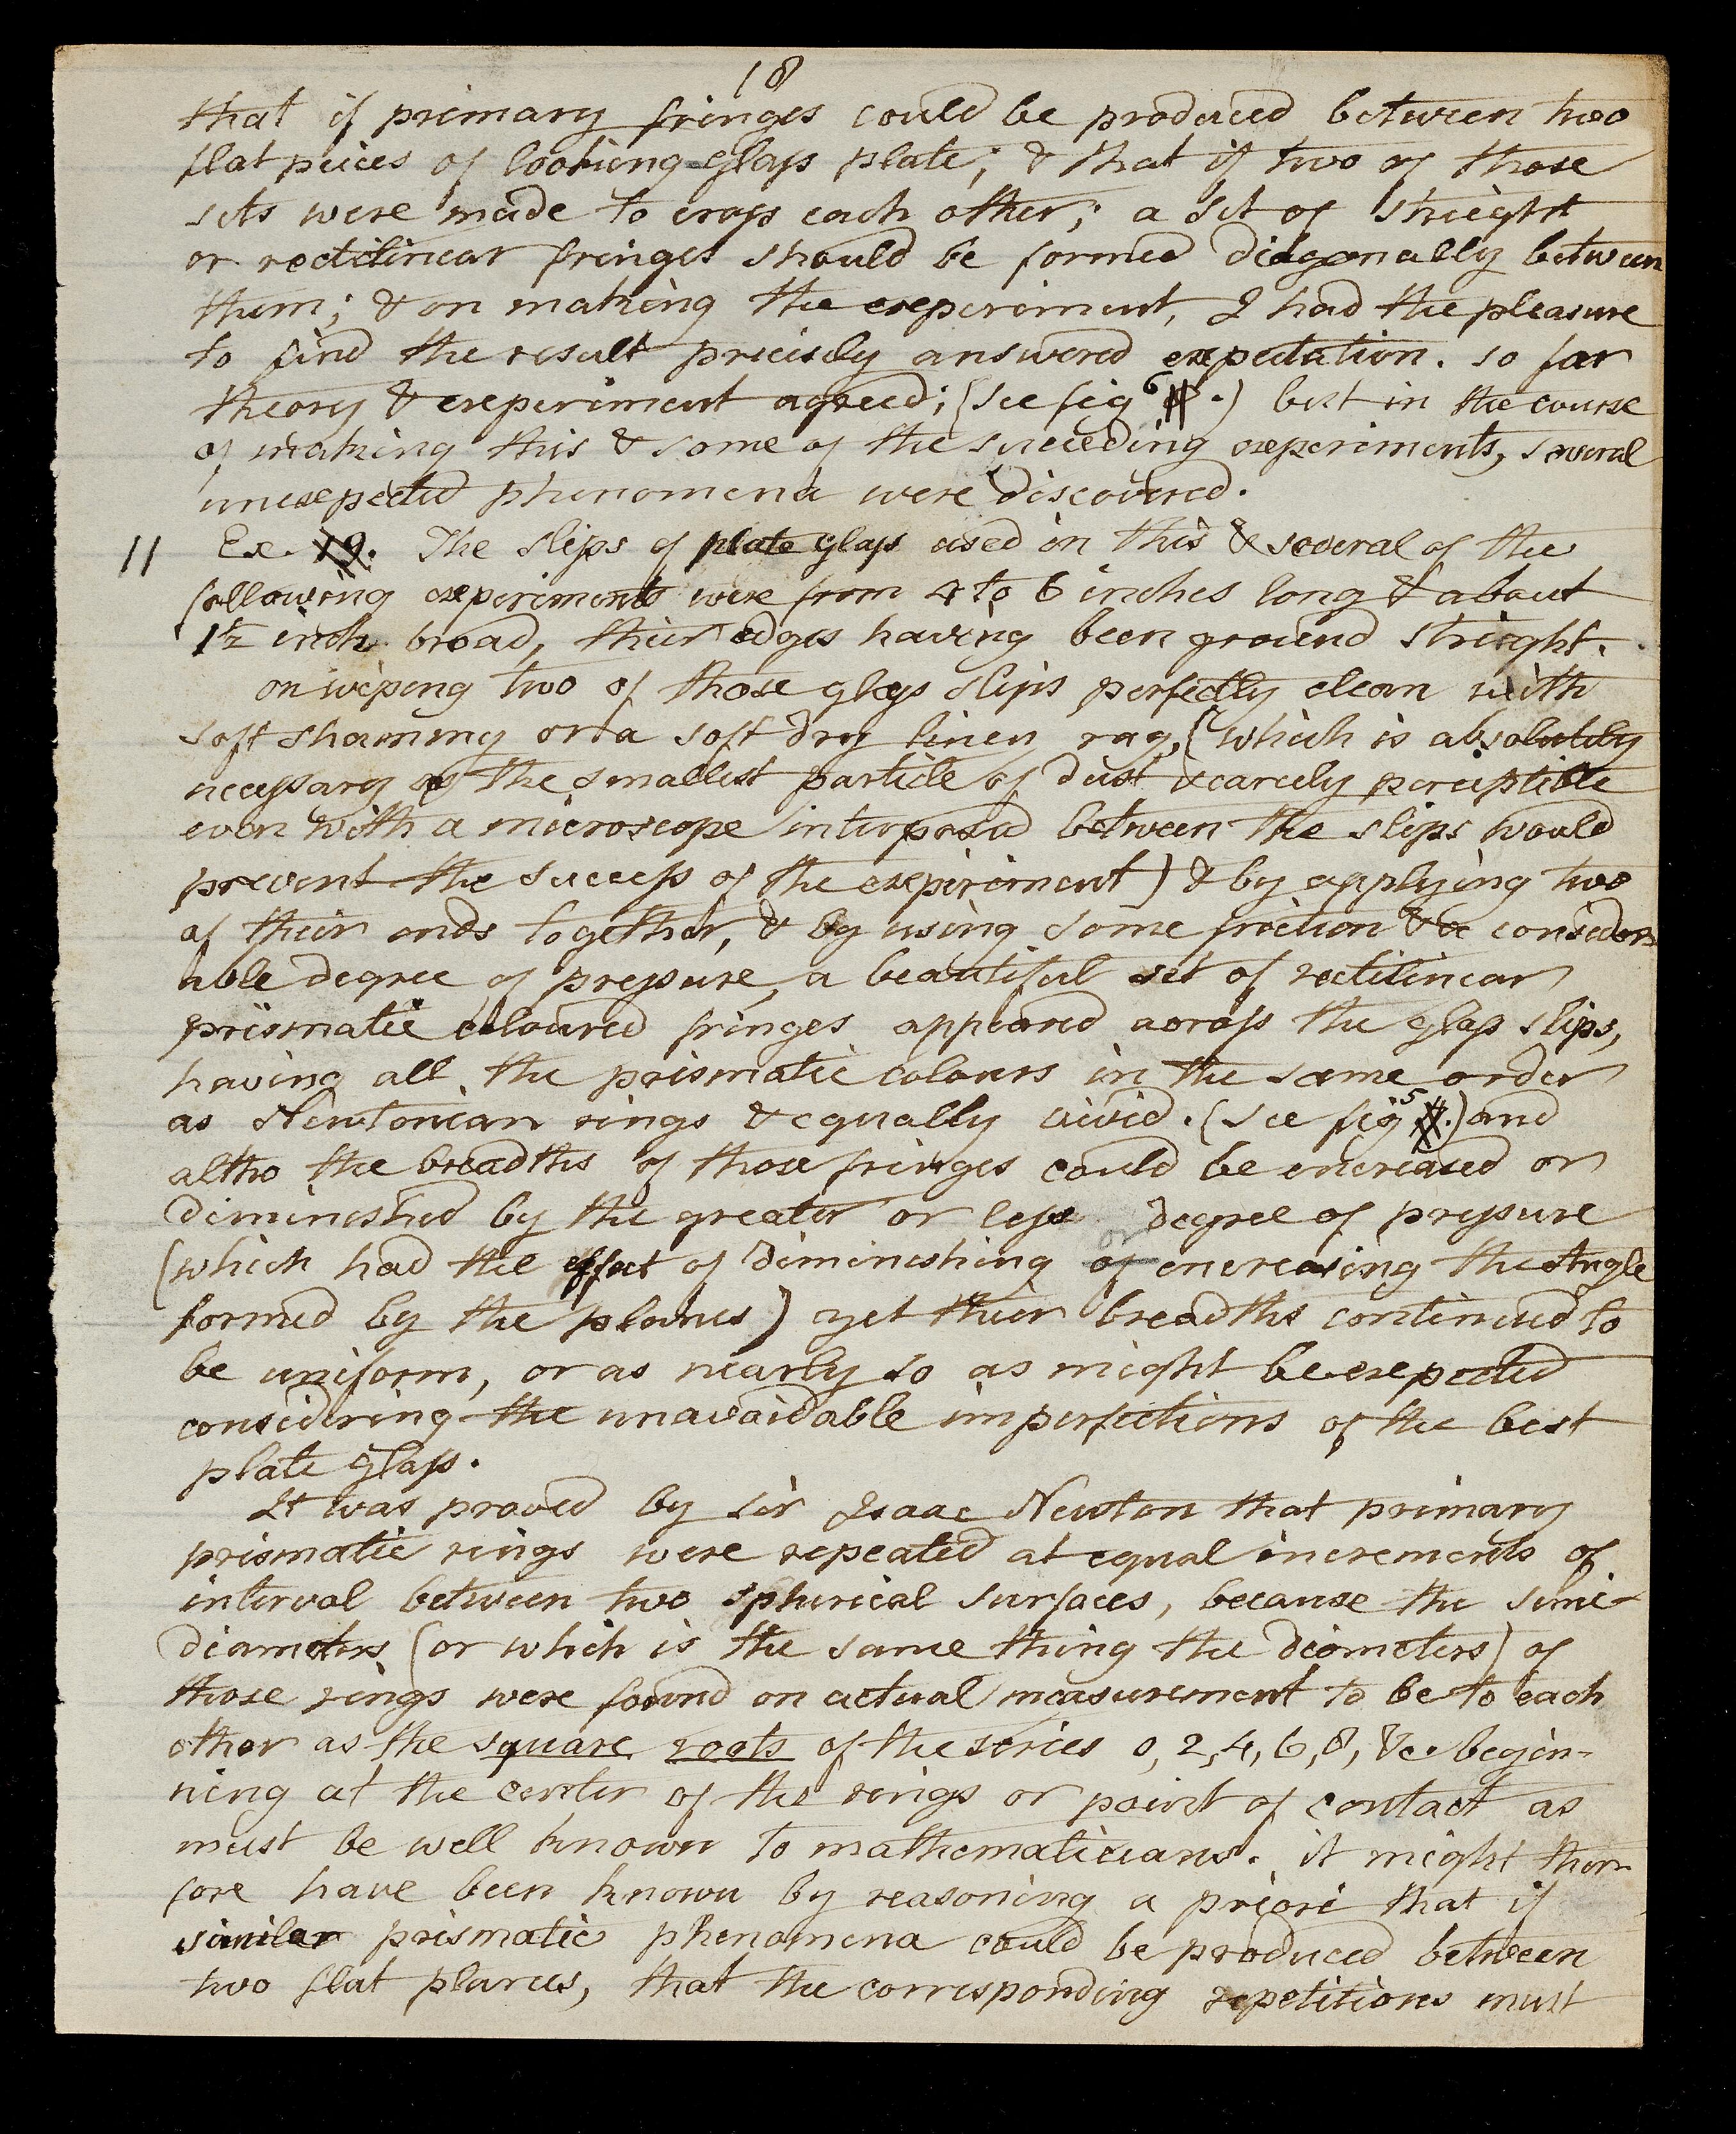 18
that if primary fringes could be produced between two
flat peices of looking-glass plate; & that if two of those
sets were made to cross each other; a set of streight
or rectilinear fringes should be formed diagonally between
them; & on making the experiment, I had the pleasure
to find the result precisely answered expectation. so far
theory & experiment agreed; (see fig 6.) but in the course
of making this & some of the succeeding experiments, several
unexpected phenomena were discovered.
11 Ex. 19. The slips of plate glass used in this & several of the
following experiments were from 4 to 6 inches long & about
1½ inch broad, their edges having been ground streight.
on wiping two of those glass slips perfectly clean with
soft shammy or a soft dry linen rag, (which is absolutely
necessary as the smallest particle of dust scarcely perceptible
even with a microscope interposed between the slips would
prevent the success of the experiment) & by applying two
of their ends together, & by using some friction & a consider
able degree of pressure, a beautiful set of rectilinear
prismatic coloured fringes appeared across the glass slips,
having all the prismatic colours in the same order
as Newtonian rings & equally vivid. (see fig 5.) and
altho the breadths of those fringes could be encreased or
diminished by the greater or less degree of pressure
(which had the effect of diminishing of or encreasing the Angle
formed by the planes) yet thier breadths continued to
be uniform, or as nearly so as might be expected
considering the unavoidable imperfections of the best
plate glass.
It was proved by Sir Isaac Newton that primary
prismatic rings were repeated at equal increments of
interval between two spherical surfaces, because the semi-
diameters (or which is the same thing the diameters) of
those rings were found on actual measurement to be to each
other as the square roots of the series 0, 2, 4, 6, 8, &c. begin-
ning at the center of the rings or point of contact as
must be well known to mathematicians. it might there
fore have been known by reasoning a priori that if
similar prismatic phenomena could be produced between
two flat planes, that the corresponding repetitions must